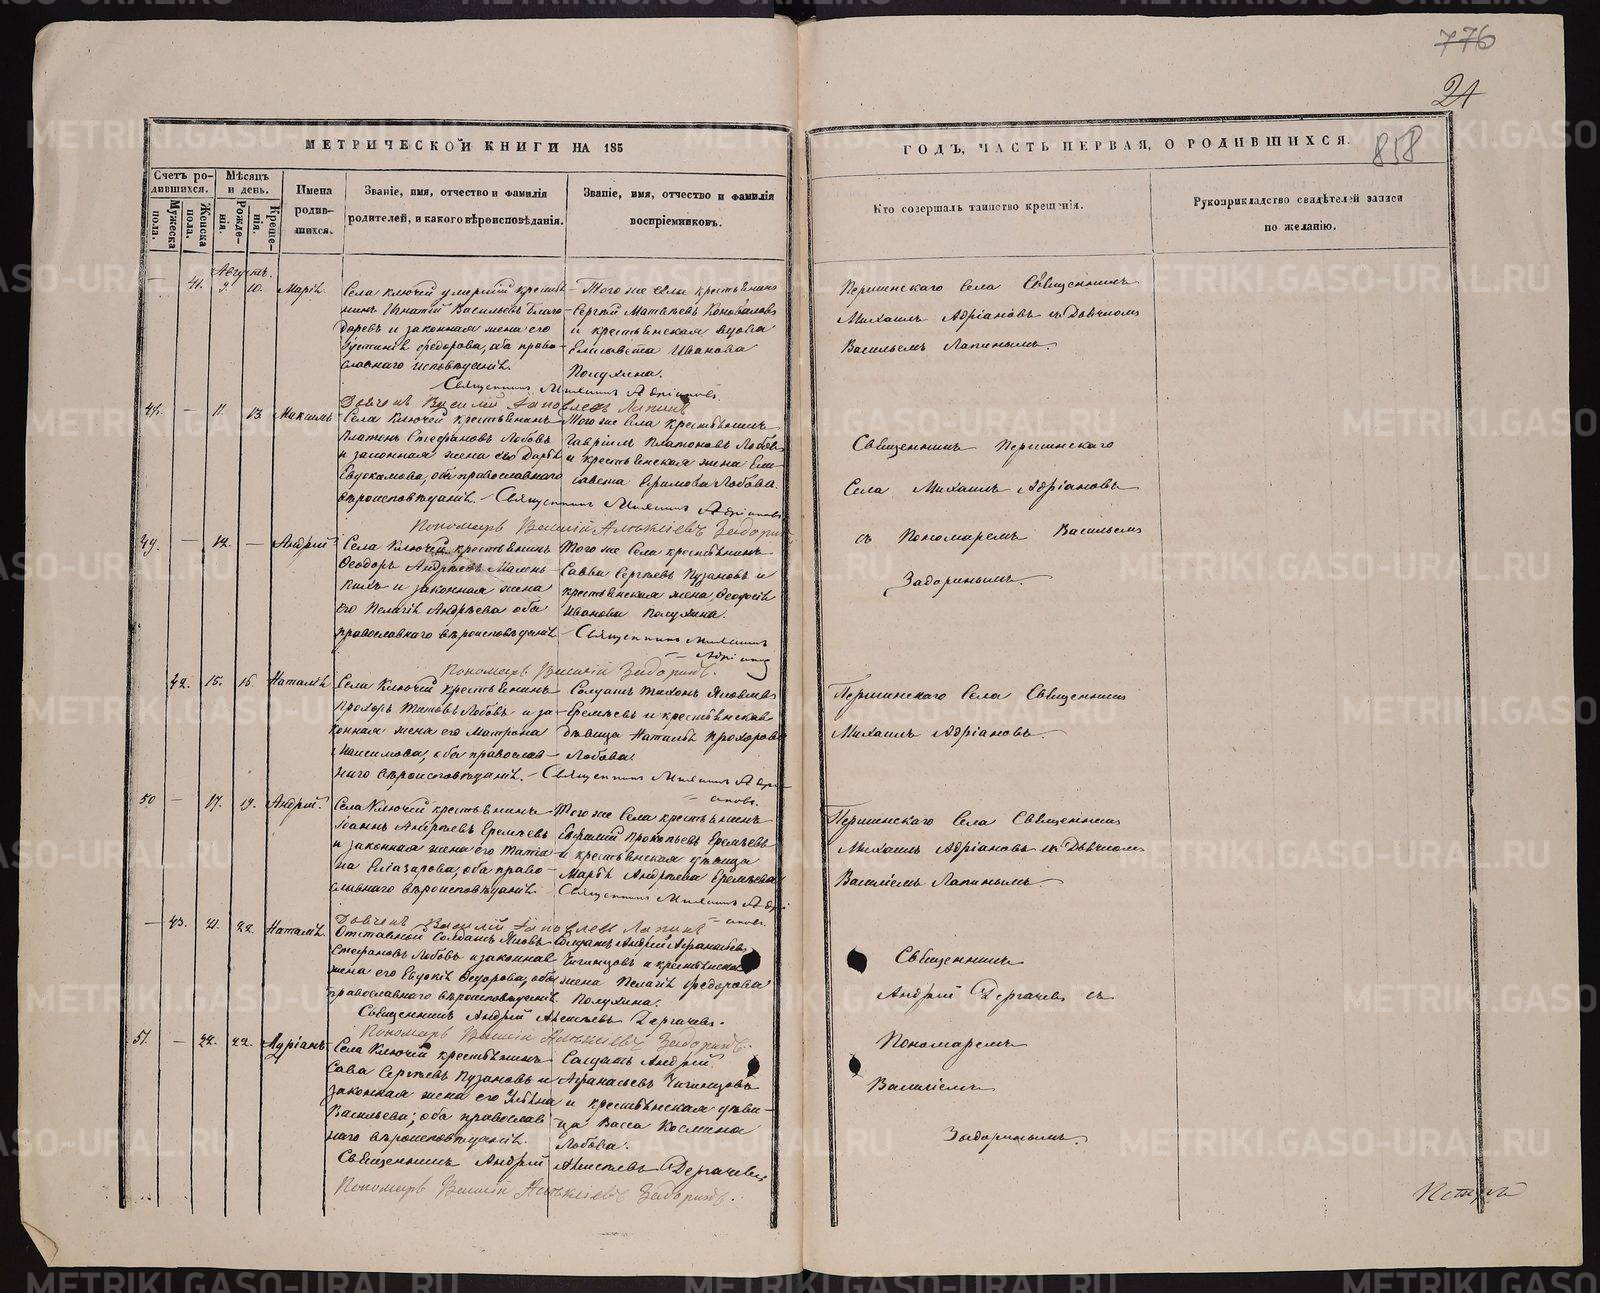 776
21
858
МЕТРИЧЕСКОЙ КНИГИ НА 185
ГОДЪ, ЧАСТЬ ПЕРВАЯ, О РОДИВШИХСЯ.
Счетъ родившихся.
Мужеска пола.
Женска пола.
Мѣсяцъ и день.
Рожденія.
Крещенія.
Имена родившихся.
Званіе, имя, отчество и фамилія родителей, и какого вѣроисповѣданія.
Званіе, имя, отчество и фамилія воспріемниковъ.
Кто совершалъ таинство крещенія.
Рукоприкладство свидѣтелей записи по желанію.
Августъ.
— 41. 9. 10. Марія.
Села Ключей умершій крестья
нинъ Игнатій Васильевъ Благо
даревъ и законная жена его
Іустинія Федорова, оба право-
славнаго исповѣданія.
Того же села крестьянинъ
Сергѣй Матвѣевъ Коноваловъ
и крестьянская вдова
Елисавета Иванова
Полухина.
Священникъ Михаилъ Адріановъ.
Першинскаго Села Священникъ
Михаилъ Адріановъ съ Дьячкомъ
Васильемъ Лапинымъ.
— 11. 13. Максимъ
Села Ключей крестьянинъ
Платонъ Стефановъ Лобовъ
и законная жена его Дарья
Евдокимова, оба православнаго
вѣроисповѣданія.
Того же Села крестьянинъ
Гавріилъ Платоновъ Лобовъ
и крестьянская жена Ели-
савета Лобова.
Священникъ Михаилъ Адріановъ
Священникъ Першинскаго
Села Михаилъ Адріановъ
съ Пономаремъ Васильемъ
Задоринымъ.
49. — 12. — Андрей
Села Ключей крестьянинъ
Феодоръ Андреевъ Малень-
кихъ и законная жена
его Пелагія Андреева оба
православнаго вѣроисповѣданія
Того же Села крестьянинъ
Савва Сергѣевъ Пузановъ и
крестьянская жена Феодосія
Иванова Полухина.
Священникъ Михаилъ
Адріановъ
Пономарь Василій Задоринъ.
42. 15. 16. Наталія
Села Ключей крестьянинъ
Прохоръ Титовъ Лобовъ и за-
конная жена его Матрона
Максимова, оба православ-
наго вѣроисповѣданія.
Солдатъ Тихонъ Яковлевъ
Еремѣевъ и крестьянская
дѣвица Наталья Прохорова
Лобова.
Священникъ Михаилъ Адрі-
ановъ.
Першинскаго Села Священникъ
Михаилъ Адріановъ.
50 — 17. 19. Андрей.
Села Ключей крестьянинъ
Іоаннъ Андреевъ Еремѣевъ
и законная жена его Татіа-
на Елеазарова, оба право-
славнаго вѣроисповѣданія.
Того же Села крестьянинъ
Евфимій Прокопьевъ Еремѣевъ
и крестьянская дѣвица
Марья Андреева Еремѣева
Священникъ Михаилъ Адрі
ановъ.
Першинскаго Села Священникъ
Михаилъ Адріановъ съ Дьячкомъ
Васильемъ Лапинымъ.
— 43. 21. 22. Наталія.
Отставной Солдатъ Яковъ
Стефановъ Лобовъ и законная
жена его Евдокія Федорова, оба
православнаго вѣроисповѣданія
Солдатъ Андрей Афанасьевъ
Чигинцовъ и крестьянская
жена Пелагія Федорова
Полухина.
Священникъ Андрей Алексѣевъ Дергачевъ.
Священникъ
Андрей Дергачевъ съ
Пономаремъ
Василіемъ
Задоринымъ.
51. — 22. 22. Адріанъ
Села Ключей крестьянинъ
Сава Сергѣевъ Пузановъ и
законная жена его Ульяна
Васильева; оба православ
наго вѣроисповѣданія.
Солдатъ Андрей
Афанасьевъ Чигинцовъ
и крестьянская дѣви-
ца Васса Космина
Лобова.
Священникъ Андрей Алексѣевъ Дергачевъ
METRIKI.GASO-URAL.RU